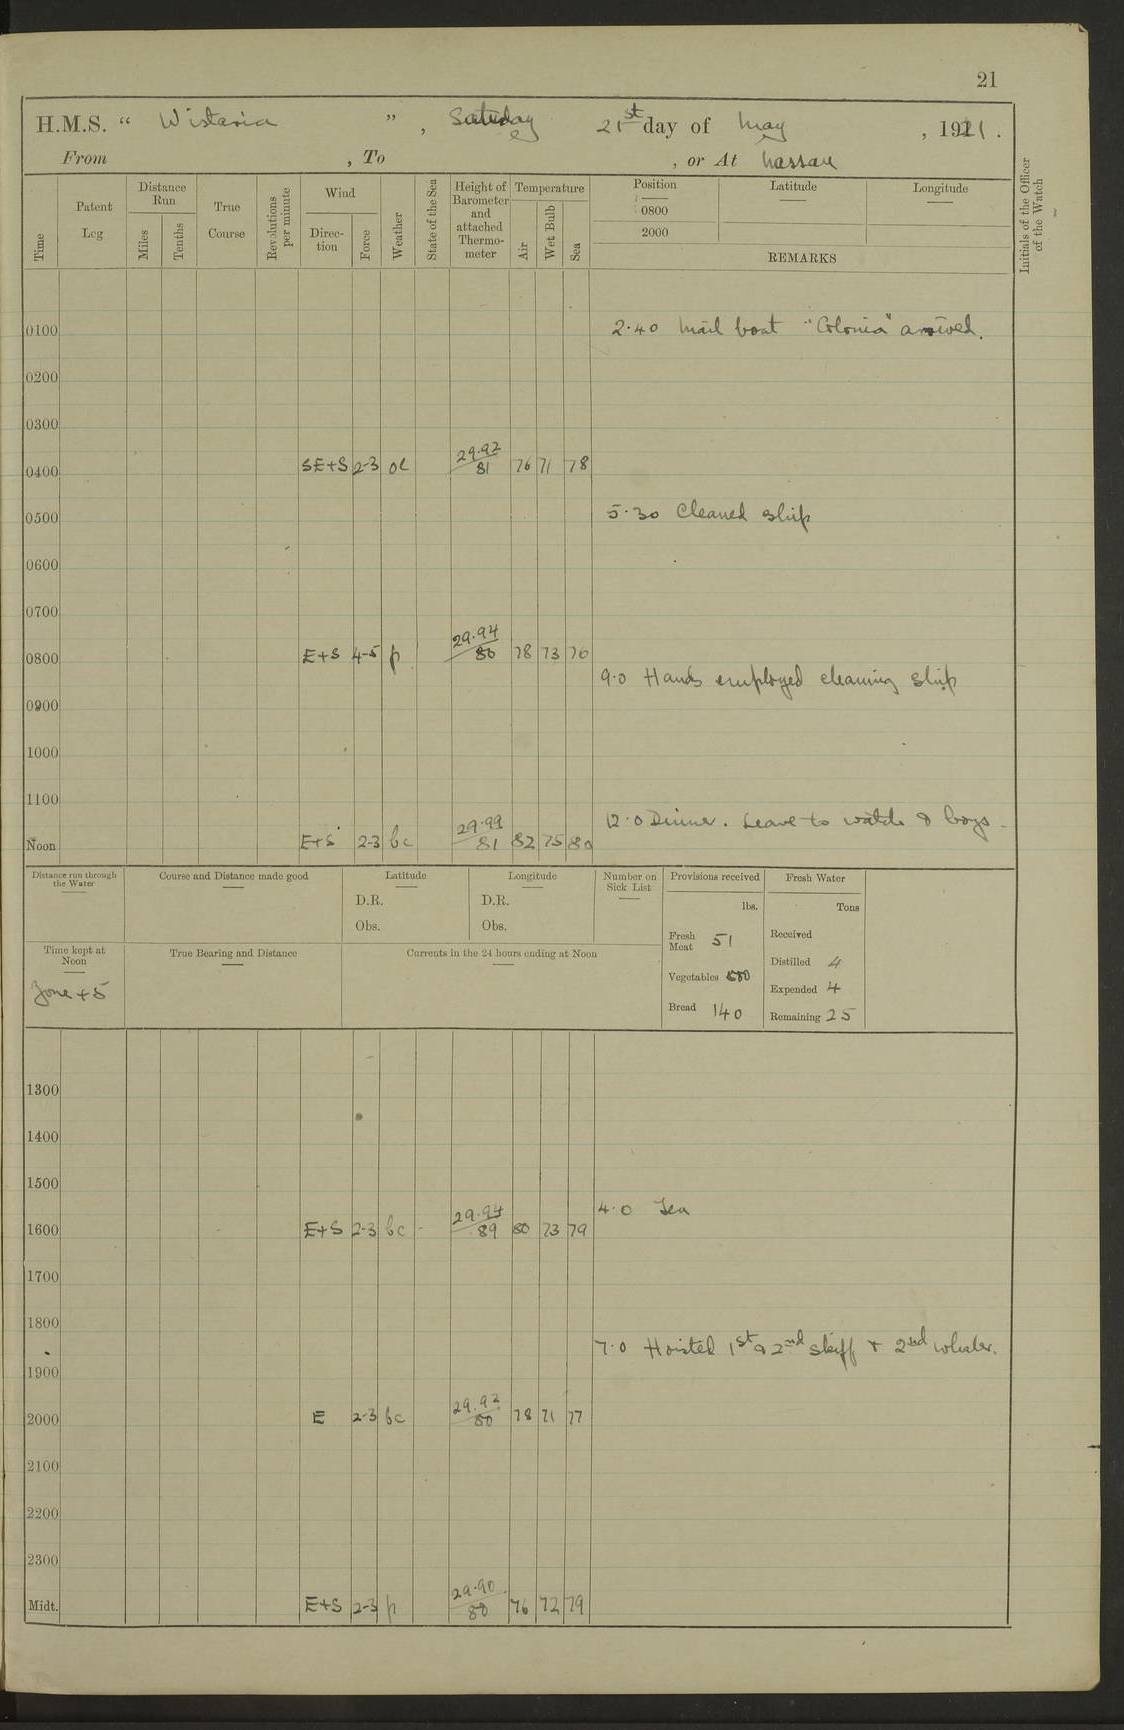 21
H.M.S. “ Wistaria ” , Saturday 21st day of May , 1921 .
From , To , or At Nassau
Time
Patent Log
Distance Run
Miles
Tenths
True Course
Revolutions per minute
Wind
Direc- tion
Force
Weather
State of the Sea
Height of Barometer and attached Thermo- meter
Temperature
Air
Wet Bulb
Sea
Position Latitude Longitude
0800
2000
REMARKS
Initials of the Officer of the Watch
0100 2.40 Mail boat "Colonia" arrived.
0200
0300
0400 SE+S 2-3 oc 29.92 / 81 76 71 78
0500 5.30 Cleaned ship
0600
0700
0800 E+S 4-5 p 29.94 / 80 78 73 76
9.0 Hands employed cleaning ship
0900
1000
1100
12.0 Dinner. Leave to watch & boys
Noon E+S 2-3 bc 29.99 / 81 82 75 80
Distance run through the Water
Course and Distance made good
Latitude
D.R.
Obs.
Longitude
D.R.
Obs.
Number on Sick List
Provisions received
lbs.
Fresh Meat 51
Vegetables
Bread 140
Fresh Water
Tons
Received
Distilled 4
Expended 4
Remaining 25
Time kept at Noon
Zone +5
True Bearing and Distance
Currents in the 24 hours ending at Noon
1300
1400
1500
4.0 Tea
1600 E+S 2-3 bc - 29.94 / 89 80 73 79
1700
1800
7.0 Hoisted 1st & 2nd skiff + 2nd whaler.
1900
2000 E 2-3 bc 29.92 / 80 78 71 77
2100
2200
2300
Midt. E+S 2-3 p 29.90 / 80 76 72 79